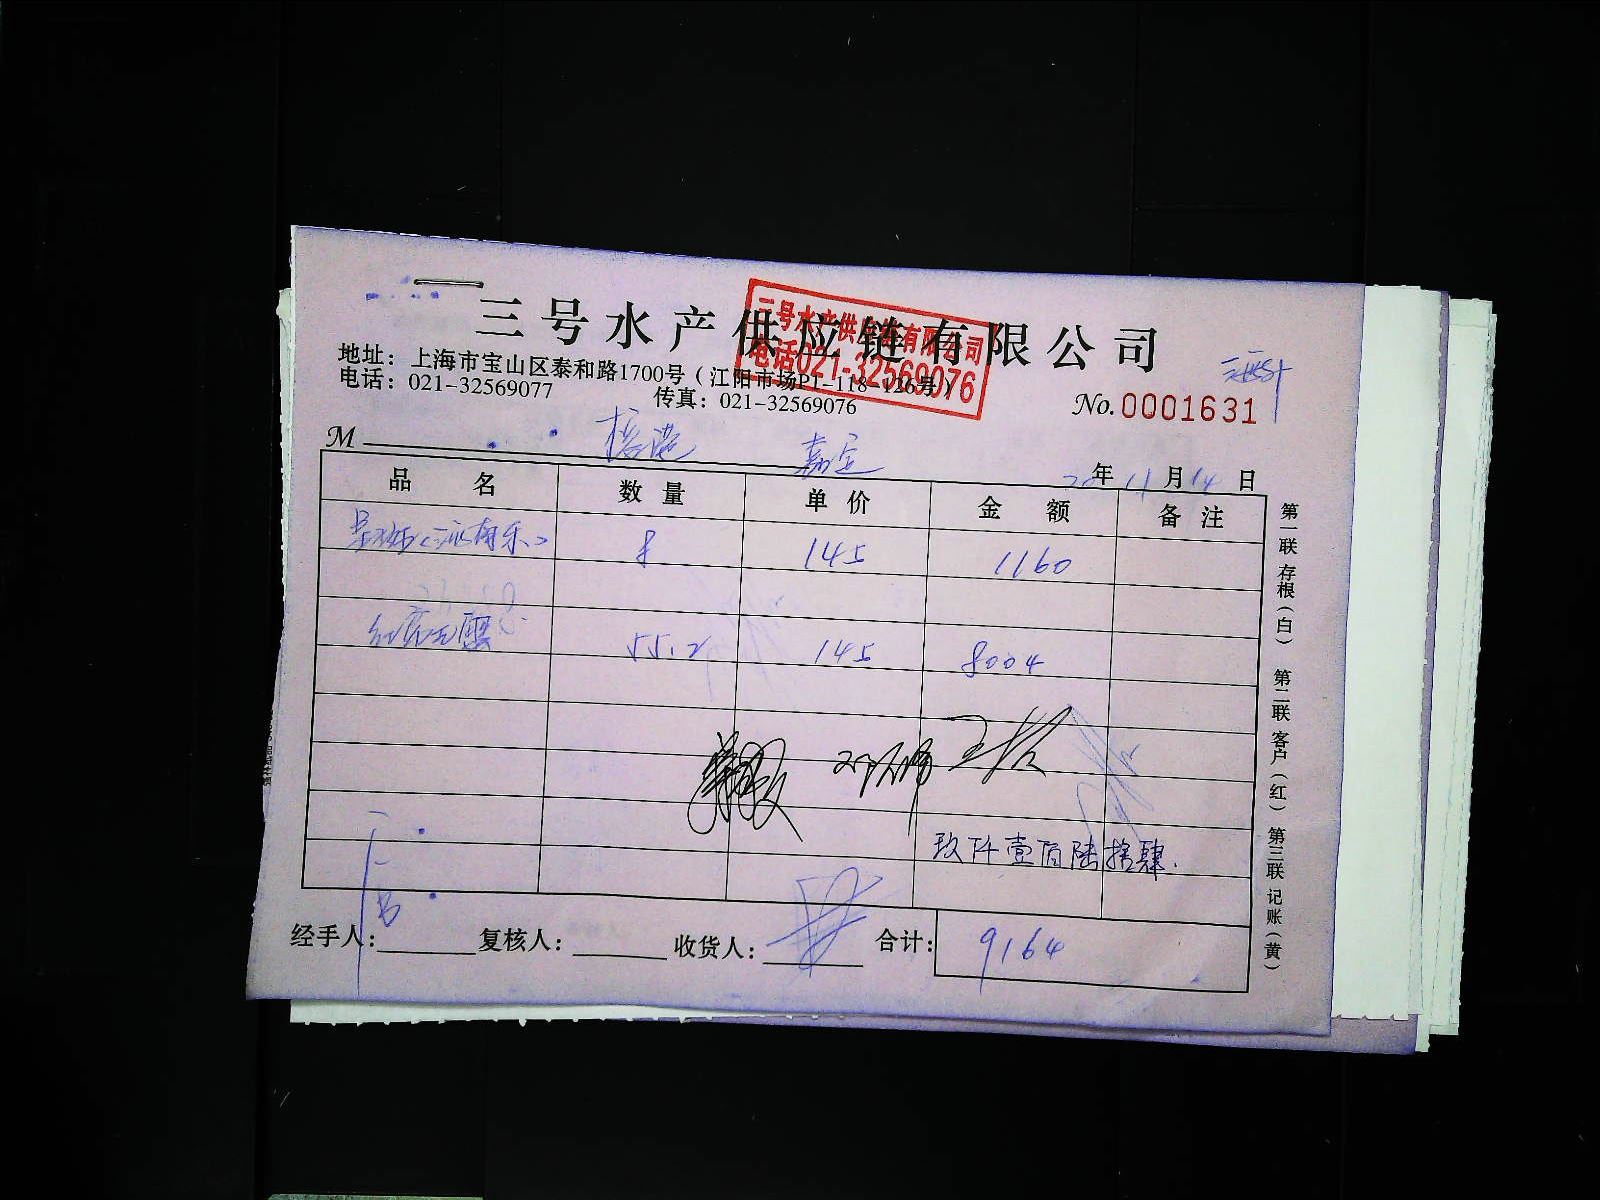 三号水产供应链有限公司
三号水产供应链有限公司
电话021-32569076
地址：上海市宝山区泰和路1700号（江阳市场P1-118-126号）
电话：021-32569077 传真：021-32569076
No.0001631
M
嘉定
20年11月14日
品名 数量 单价 金额 备注
8 145 1160
55.2 145 8004
玖仟壹佰陆拾肆.
经手人： 复核人： 收货人： 合计： 9164
第一联 存根（白） 第二联 客户（红） 第三联 记账（黄）